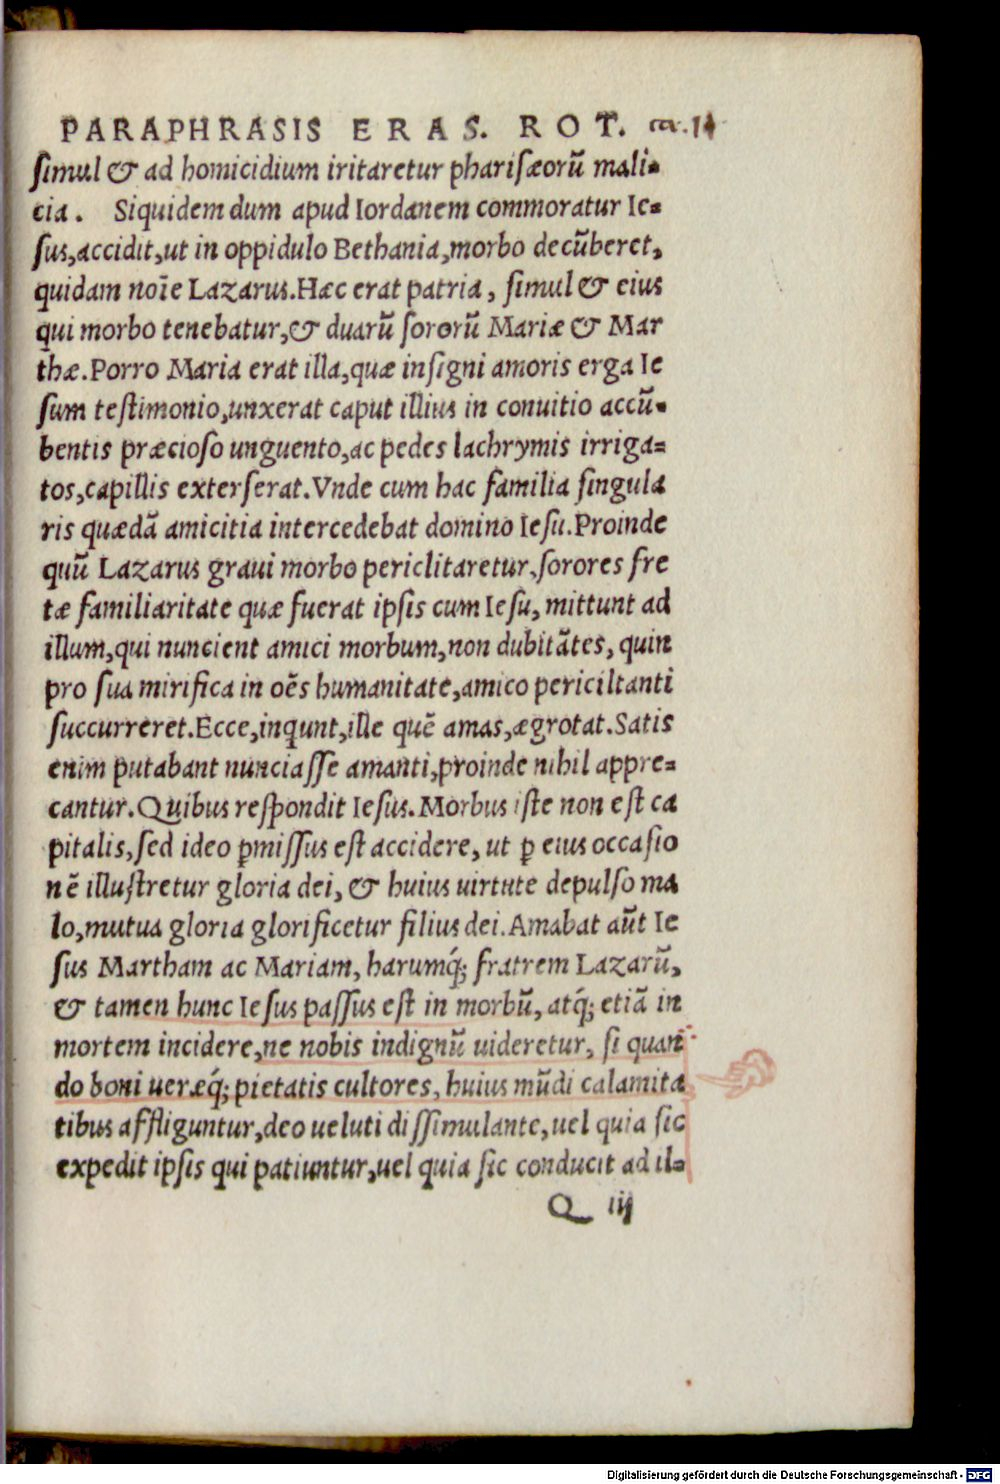 PARAPHRASIS ERAS. ROT. ca. 11
ſimul & ad homicidium iritaretur phariſæorũ mali-
cia. Siquidem dum apud Iordanem commoratur Ie-
ſus, accidit, ut in oppidulo Bethania, morbo decũberet,
quidam noĩe Lazarus. Hæc erat patria, ſimul & eius
qui morbo tenebatur, & duarũ ſororũ Mariæ & Mar
thæ. Porro Maria erat illa, quæ inſigni amoris erga Ie
ſum teſtimonio, unxerat caput illius in conuitio accũ-
bentis præcioſo unguento, ac pedes lachrymis irriga-
tos, capillis exterſerat. Vnde cum hac familia ſingula
ris quædã amicitia intercedebat domino Ieſu. Proinde
quũ Lazarus graui morbo periclitaretur, ſorores fre
tæ familiaritate quæ fuerat ipſis cum Ieſu, mittunt ad
illum, qui nuncient amici morbum, non dubitãtes, quin
pro ſua mirifica in oẽs humanitate, amico periciltanti
ſuccurreret. Ecce, inqunt, ille quẽ amas, ægrotat. Satis
enim putabant nunciaſſe amanti, proinde nihil appre-
cantur. Quibus reſpondit Ieſus. Morbus iſte non eſt ca
pitalis, ſed ideo ꝑmiſſus eſt accidere, ut ꝑ eius occaſio
nẽ illuſtretur gloria dei, & huius uirtute depulſo ma
lo, mutua gloria glorificetur filius dei. Amabat aũt Ie
ſus Martham ac Mariam, harumq́; fratrem Lazarũ,
& tamen hunc Ieſus paſſus eſt in morbũ, atq́; etiã in
mortem incidere, ne nobis indignũ uideretur, ſi quan
do boni ueræq́; pietatis cultores, huius mũdi calamita
tibus affliguntur, deo ueluti diſſimulante, uel quia ſic
expedit ipſis qui patiuntur, uel quia ſic conducit ad il-
Q iij
Digitalisierung gefördert durch die Deutsche Forschungsgemeinschaft - DFG